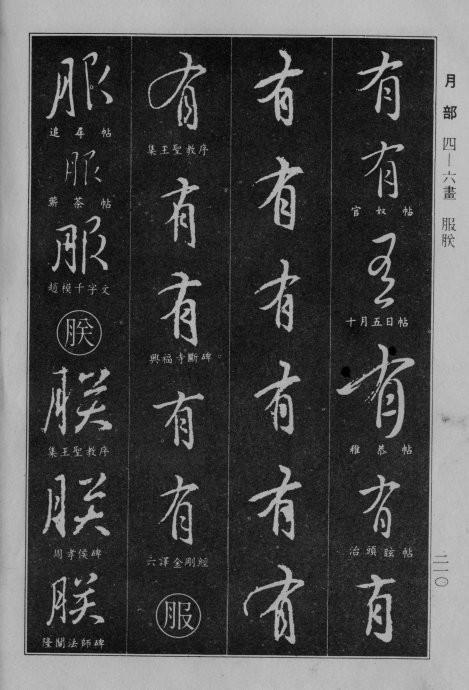 月部 四—六畫 服朕
二一〇
有
有
官奴帖
有
十月五日帖
有
雅恭帖
有
治頭眩帖
有
有
有
有
有
有
有
有
集王聖教序
有
有
興福寺斷碑
有
有
六譯金剛經
服
服
追尋帖
服
茶帖
服
趙模千字文
朕
朕
集王聖教序
朕
周孝侯碑
朕
隆闡法師碑